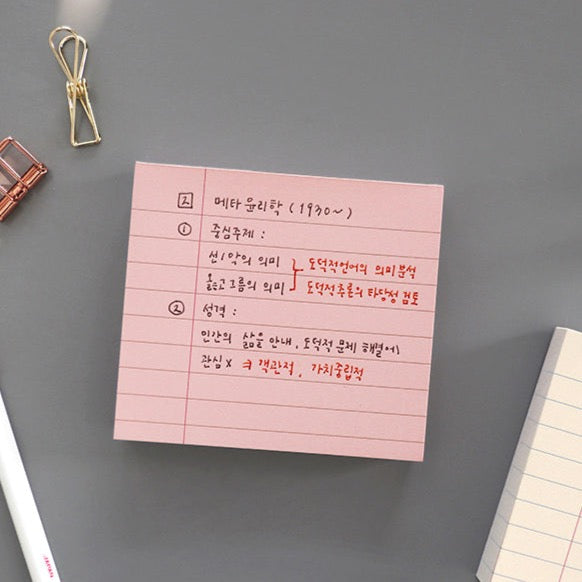 2 메타 윤리학 (1930~)
① 중심주제 :
선/악의 의미 } 도덕적언어의 의미분석
옳음고 그름의 의미 } 도덕적추론의 타당성 검토
② 성격 :
인간의 삶을 안내, 도덕적 문제 해결에
관심 x ⇒ 객관적, 가치중립적